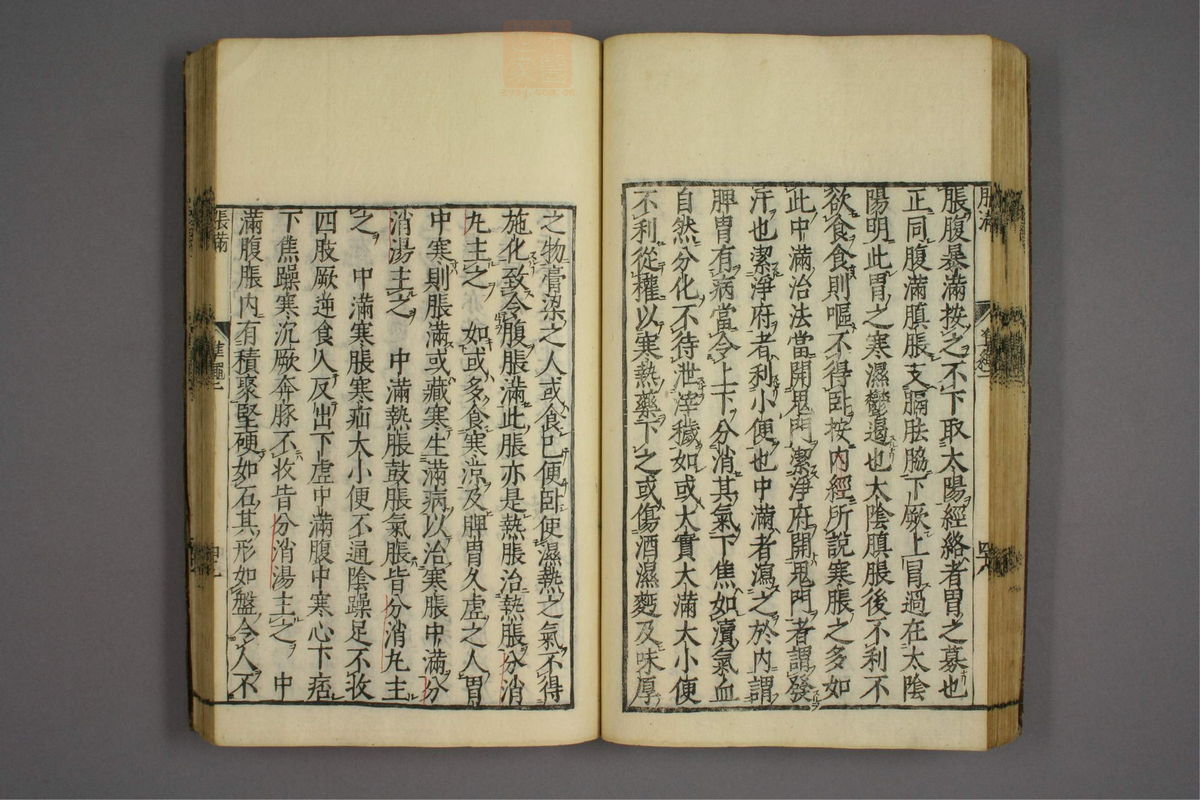 脹腹暴滿按之不下取太陽經絡者胃之募也
正同腹滿䐜脹支膈胠脇下厥上冒過在太陰
陽明此胃之寒濕鬱遏也太陰䐜脹後不利不
欲食食則嘔不得臥按內經所說寒脹之多如
此中滿治法當開鬼門潔淨府開鬼門者謂發
汗也潔淨府者利小便也中滿者瀉之於內謂
脾胃有病當令上下分消其氣下焦如瀆氣血
自然分化不待泄滓穢如或大實大滿大小便
不利從權以寒熱藥下之或傷酒濕麪及味厚
之物膏梁之人或食已便臥使濕熱之氣不得
施化致令腹脹滿此脹亦是熱脹治熱脹分消
丸主之 如或多食寒涼及脾胃久虛之人胃
中寒則脹滿或藏寒生滿病以治寒脹中滿分
消湯主之 中滿熱脹鼓脹氣脹皆分消丸主
之 中滿寒脹寒疝大小便不通陰躁足不收
四肢厥逆食入反出下虛中滿腹中寒心下痞
下焦躁寒沉厥奔豚不收皆分消湯主之 中
滿腹脹內有積聚堅硬如石其形如盤令人不
脹滿